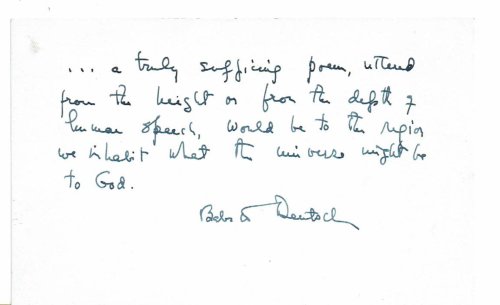 ... a truly sufficing poem, uttered
from the height or from the depth of
human speech, would be to the region
we inhabit what the universe might be
to God.
Babette Deutsch